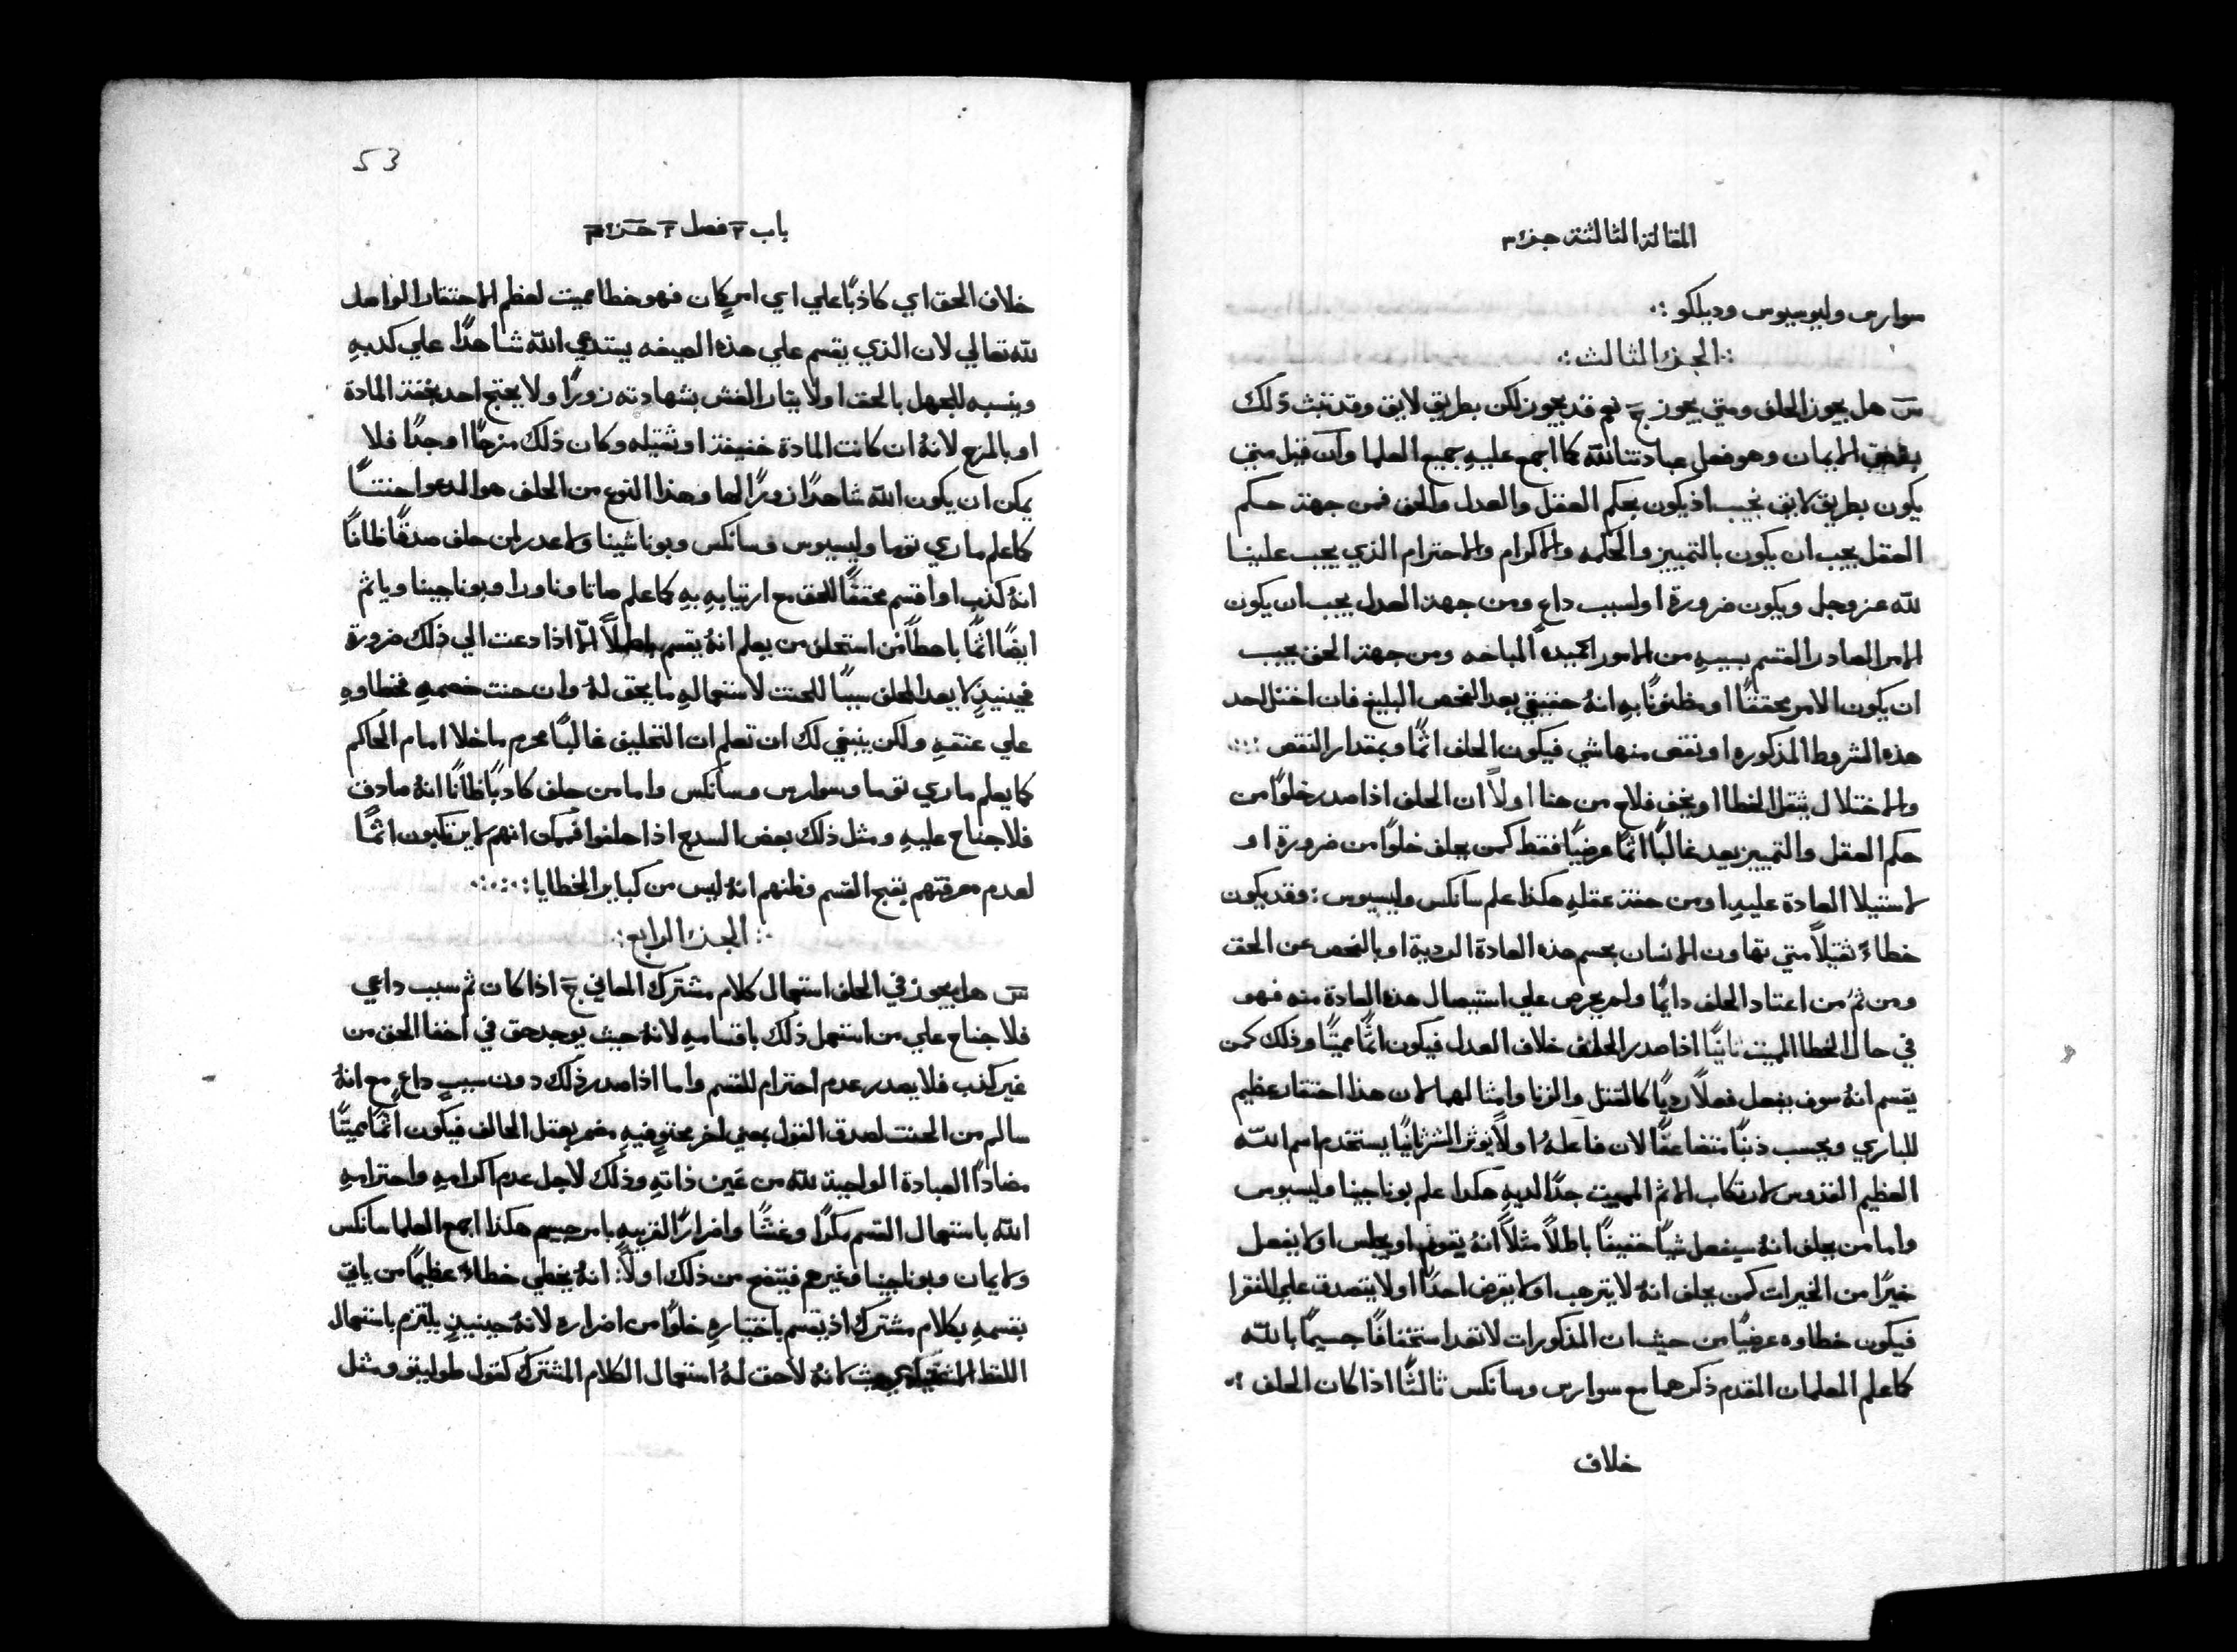 المقالة الثالثة جزء ٣
سوارس وليوسيوس وديلكو
الجزء الثالث
س هل يجوز الحلف ومتي يجوز ج نعم قد يجوز لكن بطريق لايق وقد تثبت ذلك
الايمان وهو فعل عبادتنا لله كما اجمع عليهِ جميع العلما وان قيل متي
يكون بطريق لايق نجيب اذ يكون بحكم العقل والعدل والحق فمن جهة حكم
العقل يجب ان يكون بالتمييز والحكمه والاكرام والاحترام الذي يجب علينا
لله عز وجل ويكون ضرورة او لسبب داعٍ ومن جهة العدل يجب ان يكون
الامر الصادر القسم بسببهِ من الامور الحميده المباحه ومن جهة الحق يجب
ان يكون الامر محققًا او مظنونًا بهِ انهُ حقيقي بعد الفحص البليغ فان اختل احد
هذه الشروط المذكوره او نقص منها شي فيكون الحلف اثمًا وبمقدار النقص
والاختلال يثقل الخطا او يخف فلاح من هنا اولاً ان الحلف اذا صدر خلوًا من
حكم العقل والتمييز يعد غالبًا اثمًا عرضيًا فقط كمن يحلف خلوًا من ضرورة او
لاستيلا العادة عليهِ او من خفة عقلهِ هكذا علم سانكس وليسيوس : وقد يكون
خطاءً ثقيلاً متي تهاون الانسان بحسم هذه العادة الرديه او بالفحص عن الحق
ومن ثمَ من اعتاد الحلف دايمًا ولم يحرص علي استيصال هذه العادة منه فهو
في حال الخطا المميت ثانيًا اذا صدر الحلف خلاف العدل فيكون اثمًا مميتًا وذلك كمن
يقسم انهُ سوف يفعل فعلاً رديًا كالقتل والزنا وامثالهما لان هذا احتقار عظيم
للباري ويحسب ذنبًا متضاعفًا لان فاعلهُ اولاً يوثر الشر ثانيًا يستخدم اسم الله
العظيم القدوس لارتكاب الاثم المميت جدًا لديهِ هكدا علم بوناجينا وليسيوس
واما من يحلف انهُ سيفعل شيًا خفيفًا باطلاً مثلاً انهُ يقوم او يجلس او لا يفعل
خيرًا من الخيرات كمن يحلف انهُ لا يترهب او لا يقرض احدًا او لا يتصدق علي الفقرا
فيكون خطاوه عرضيًا من حيث ان المذكورات لا تعد استخفافًا جسيمًا بالله
كما علم المعلمان المقدم ذكرهما مع سوارس وسانكس ثالثًا اذا كان الحلف
خلاف
53
باب ٣ فصل ٢ جزء ٣
خلاف الحق اي كاذبًا علي اي امرٍ كان فهو خطا مميت لعظم الاحتقار الواصل
لله تعالي لان الذي يقسم علي هذه الصيغه يستدعي الله شاهدًا علي كدبهِ
وينسبه للجهل بالحق او لايثار الغش بشهادته زورًا ولا يحتج احد بخفة المادة
او بالمزح لانهُ ان كانت المادة خفيفة او ثقيله وكان ذلك مزحًا او جدًا فلا
يمكن ان يكون الله شاهدًا زورًا لها وهذا النوع من الحلف هو المدعوا حنثًا
كما علم ماري توما وليسيوس وسانكس وبوناشينا ولا عدر لمن حلف صدقًا ظانًا
انهُ كذب او اقسم محققًا للحق مع ارتيابهِ بهِ كما علم ماتا وناورا وبوناجينا وياثم
ايضًا اثمًا باهظًا من استحلف من يعلم انهُ يقسم باطلاً الاّ اذا دعت الي ذلك ضرورة
فحينيذٍ لا يعد المحلف سببًا للحنث لاستعمالهِ ما يحق لهُ وان حنث خصمهِ فخطاوهِ
علي عنقهِ ولكن ينبغي لك ان تعلم ان التحليف غالبًا محرم ما خلا امام الحاكم
كما يعلم ماري توما وسوارس وسانكس واما من حلف كادبًا ظانًا انهُ صادق
فلا جناح عليهِ ومثل ذلك بعض السدج اذا حلفوا فيمكن انهم لا يرتكبون اثمًا
لعدم معرفتهم بقبح القسم وظنهم انهُ ليس من كباير الخطايا
الجزء الرابع
س هل يجوز في الحلف استعمال كلام مشترك المعاني ج اذا كان ثم سبب داعي
فلا جناح علي من استعمل ذلك باقسامهِ لانهُ حيث يوجد حق في اخفا الحق من
غير كذب فلا يصدر عدم احترام للقسم واما اذا صدر ذلك دون سببٍ داعٍ مع انهُ
سالم من الحنث لصدق القول بمعني اخر محتوٍ فيهِ مضمر بعقل الحالف فيكون اثمًا مميتًا
مضادًا العبادة الواجبة لله من عَين ذاتهِ وذلك لاجل عدم اكرامهِ واحترامهِ
الله باستعمال القسم مكرًا وغشًا واضرارًا لقريبهِ بامر جسيم هكذا اجمع العلما سانكس
ولايمان وبوناجينا وغيرهم فيتضح من ذلك اولاً: انهُ يخطي خطاءً عظيمًا من ياتي
بقسمهِ بكلام مشترك اذ يقسم باختيارهِ خلوًا من اضراره لانهُ حينيذٍ يلتزم باستعمال
اللفظ لانهُ لا حق لهُ استعمال الكلام المشترك كقول طوليتو ومثل